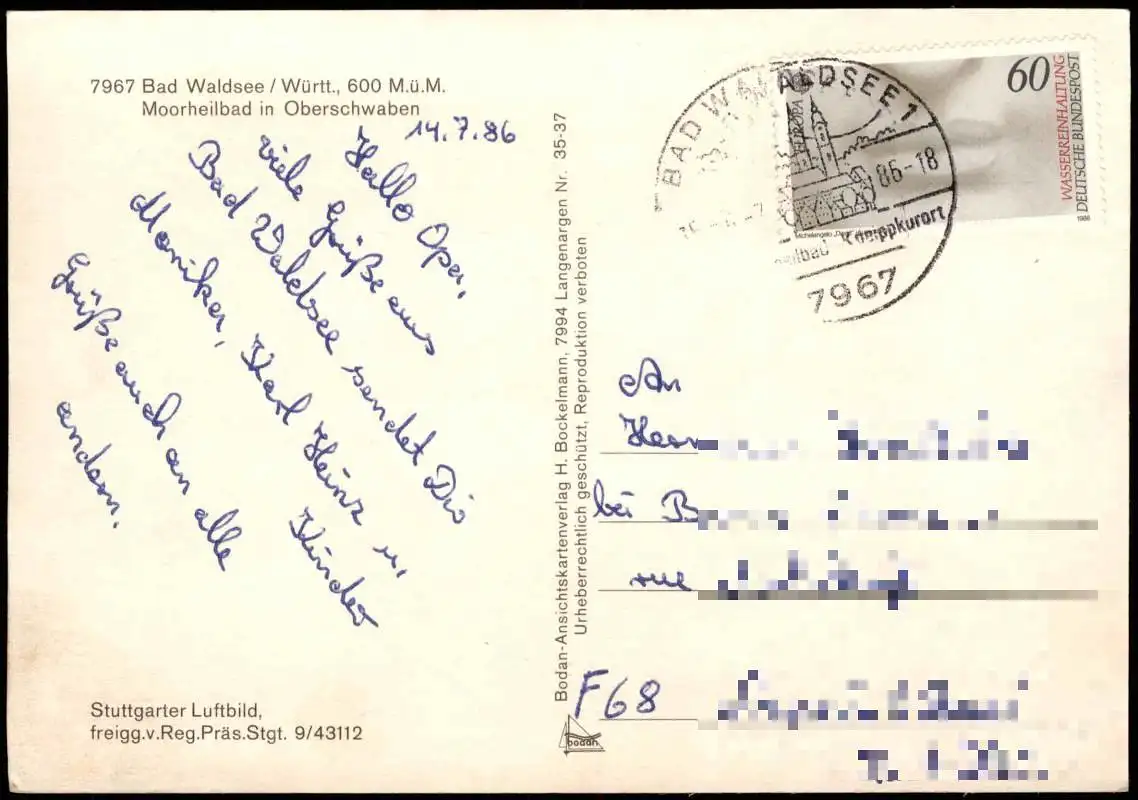 7967 Bad Waldsee / Württ., 600 M.ü.M.
Moorheilbad in Oberschwaben
14.7.86
Hallo Opa,
viele Grüße aus
Bad Waldsee sendet Dir
Monika, Karl Heinz u.
Kinder
Grüße auch an alle
andern.
Stuttgarter Luftbild,
freigg.v.Reg.Präs.Stgt. 9/43112
Bodan-Ansichtskartenverlag H. Bockelmann, 7994 Langenargen Nr. 35-37
Urheberrechtlich geschützt, Reproduktion verboten
bodan
BAD WALDSEE 1
86-18
Kneippkurort
7967
60
EUROPA
WASSERREINHALTUNG
DEUTSCHE BUNDESPOST
1986
An
Herrn
bei B
rue
F68